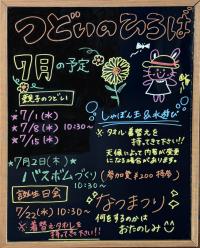 つどいのひろば
7月の予定
親子のつどい
★7/1(水)
★7/8(水) 10:30～
★7/15(水)
しゃぼん玉&水遊び
※タオル・着替えを
持ってきて下さい!!
天候によって内容が変更
になる場合があります。
★7月2日(木)★
バスボムづくり
10:30～
(参加費¥200 持参)
誕生日会
7/22(水) 10:30～
※着替え・タオルを
持ってきて下さい!
なつまつり
何をするかは
おたのしみ